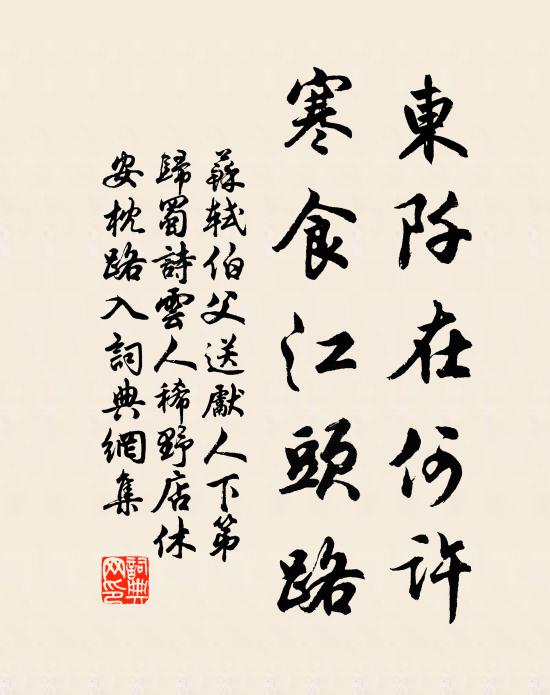 東阡在何許
寒食江頭路
蘇軾伯父送獻人下第
歸蜀詩雲人稀野店休
安枕路入詞典網集
詞典
网印